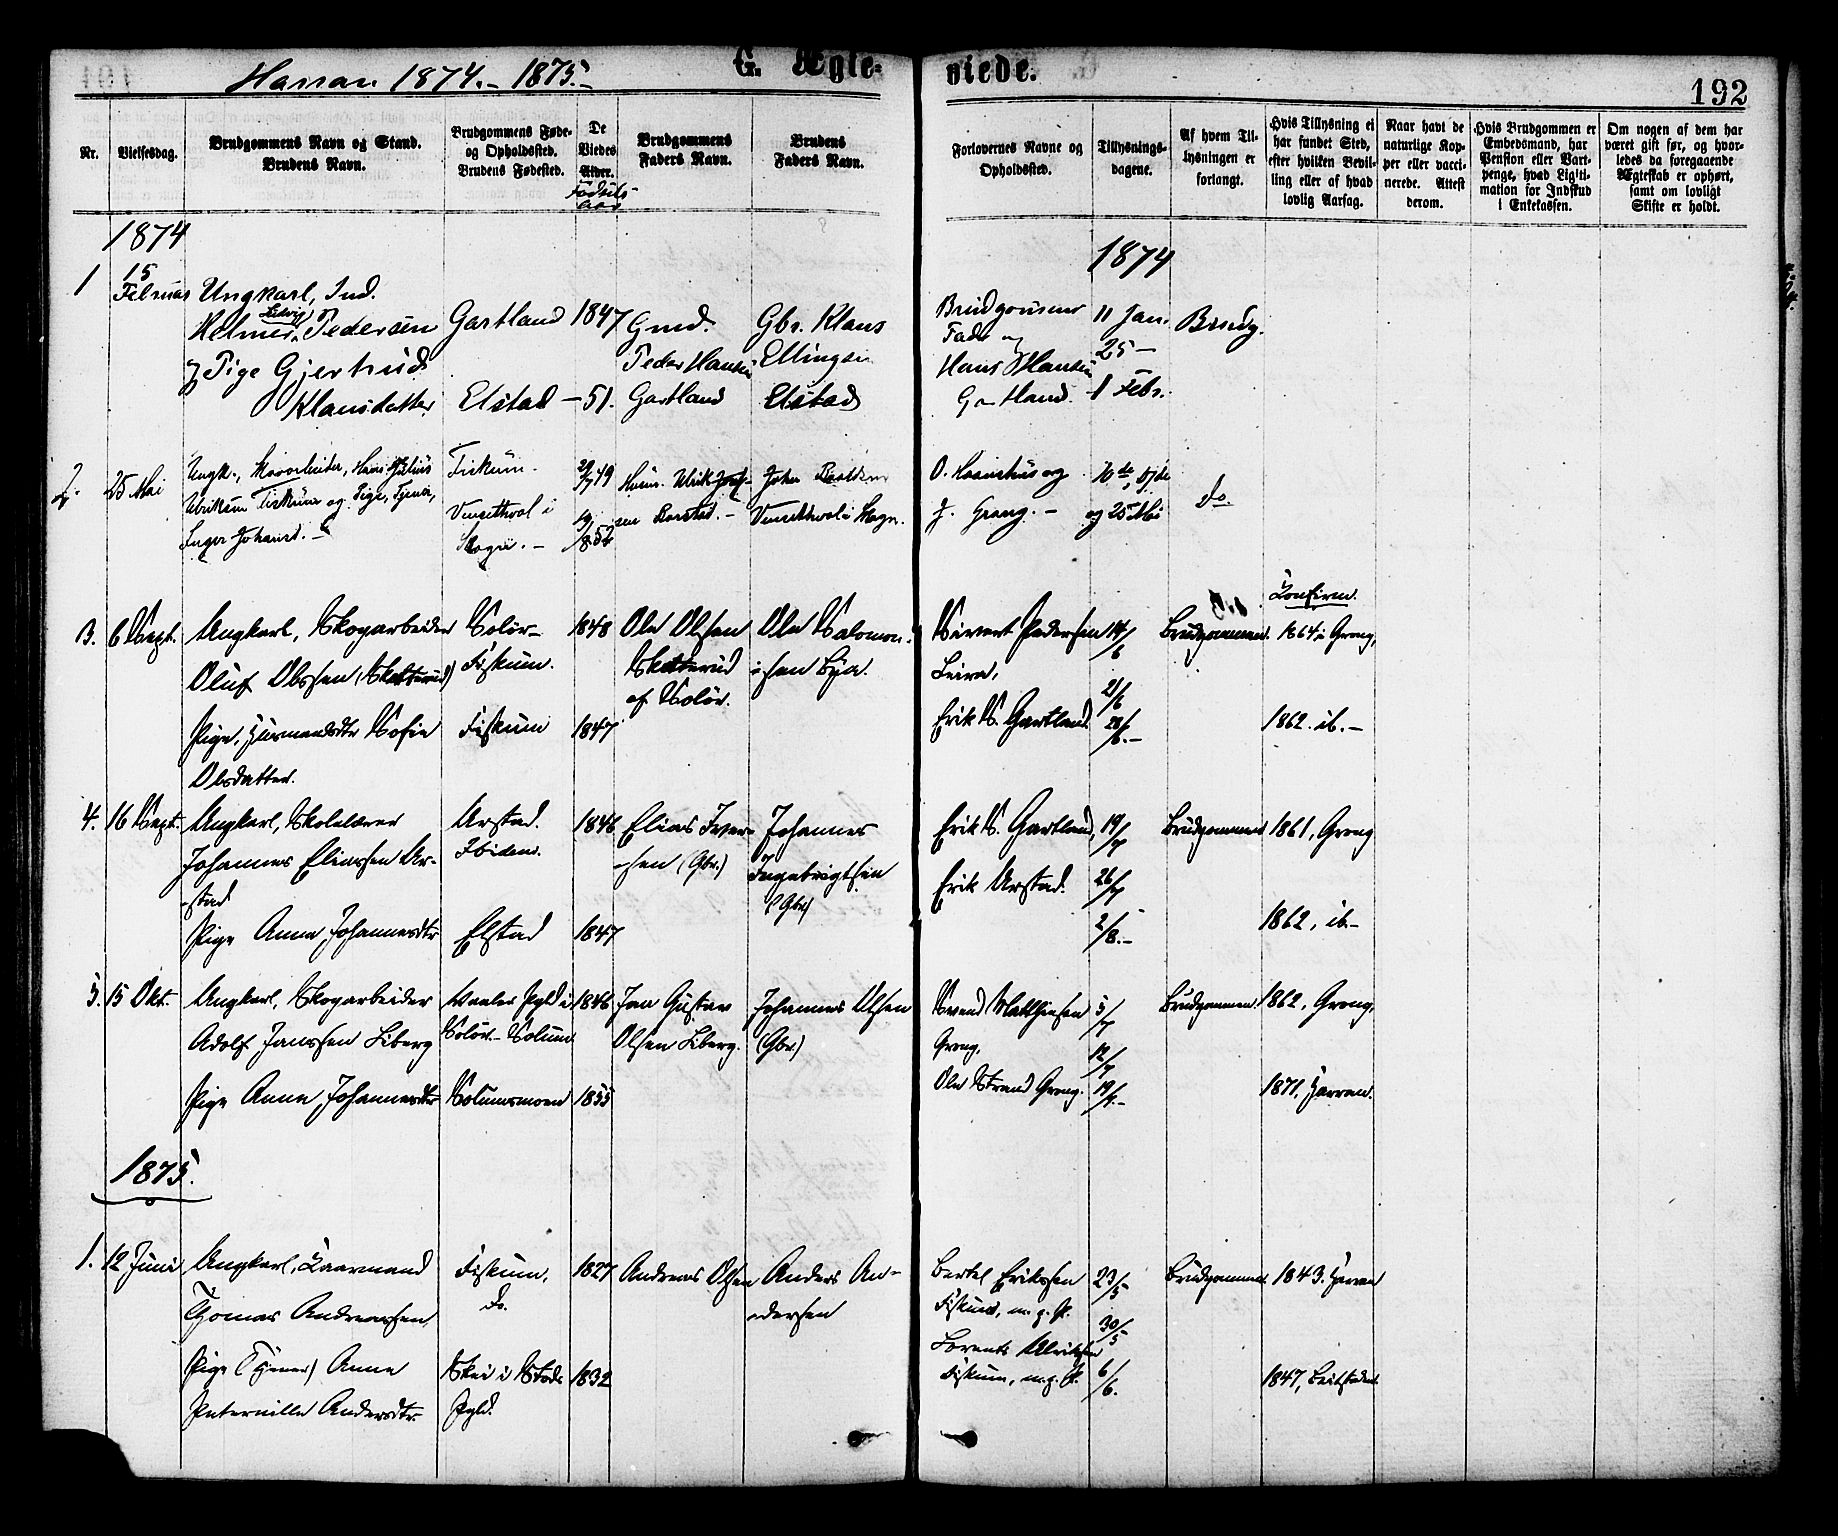 Harran 1874.- 1875.-
G. Ægte-
viede.
192
Nr.
Vielsesdag.
Brudgommens Navn og Stand.
Brudens Navn.
Brudgommens Føde-
og Opholdssted.
Brudens Fødested.
De
Viedes
Alder.
Fødsels
aar
Brudgommens
Faders Navn.
Brudens
Faders Navn.
Forlovernes Navne og
Opholdssted.
Tillysnings-
dagene.
Af hvem Til-
lysningen er
forlangt.
Hvis Tillysning ei
har fundet Sted,
efter hvilken Bevil-
ling eller af hvad
lovlig Aarsag.
Naar havt de
naturlige Kop-
per eller vacci-
nerede. Attest
derom.
Hvis Brudgommen er
Embedsmand, har
Pension eller Vart-
penge, hvad Ligiti-
mation for Indskud
i Enkekassen.
Om nogen af dem har
været gift før, og hvor-
ledes da foregaaende
Ægteskab er ophørt,
samt om lovligt
Skifte er holdt.
1874
1874
1
15
Februar
Ungkarl, Ind.
Helmer Ludvig Pedersen
Pige Gjertrud
Klausdatter
Gartland
Elstad
1847
- 51.
Gmd.
Peder Hansen
Gartland
Gbr. Klaus
Ellingsen
Elstad
Brudgommens
Fader og
Hans Hansen
Gartland.
11 Jan.
25 -
1 Febr.
Brudg.
2.
25 Mai
Ungk., Hans Julius
Ulriksen Fiskum og Pige, Tjener,
Inger Johansd. -
Fiskum. -
i
Skogn. -
29/7 49
19/8 52
Husm. Ulrik
John
i Skogn.
O. Haarstuis og
J. Grong. -
10de, 17de
og 25 Mai
do.
3.
6 Sept.
Ungkarl, Skogarbeider
Oluf Olssen (Skotterud)
Pige, Husmandsdtr Sofie
Olsdatter.
Solør-
Fiskum.
Fiskum
1848
1847
Ole Olsen
Skotterud
af Solør.
Ole Salomon-
-sen Bya.
Sivert Pedersen
Leira,
Erik S. Gartland.
14/6
21/6
28/6.-
Brudgommen.
Confirm.
1864 i Grong,
1862. ib.-
4.
16 Sept.
Ungkarl, Skolelærer
Johannes Eliassen Ur-
-stad
Pige Anne Johannesdtr
Urstad.
Ibidem.
Elstad
1846
1847
Elias Iver-
-sen (Gbr.)
Johannes
Ingebrigtsen
(Gbr.)
Erik S. Gartland,
Erik Urstad.
19/7
26/7
2/8.-
Brudgommen
1861, Grong
1862, ib.-
5.
15 Okt.
Ungkarl, Skogarbeider
Adolf Janssen Liberg
Pige Anne Johannesdtr
Vaaler Pgld i
Solør.- Solum
Solumsmoen
1846
1855
Jan Gustav
Olsen Liberg.
Johannes Olsen
(Gbr.)
Svend Matthiesen
Grong,
Ole Strand Grong.
5/7
12/7
19/7.-
Brudgommen
1862, Grong,
1871, Harran.
1875.
1.
12 Juni
Ungkarl, Kaarmand
Thomas Andreassen,
Pige (Tjener) Anne
Peternille Andersdtr.
Fiskum,
do.
Skei i Stods
Pgld.
1827
1832
Andreas Olsen
Anders An-
-dersen
Bertel Erikssen
Fiskum, m. g. P.
Lorents Ulriksen
Fiskum, m. g. P.
23/5
30/5
6/6.
Brudgommen
1843. Harran
1847, Beitstaden